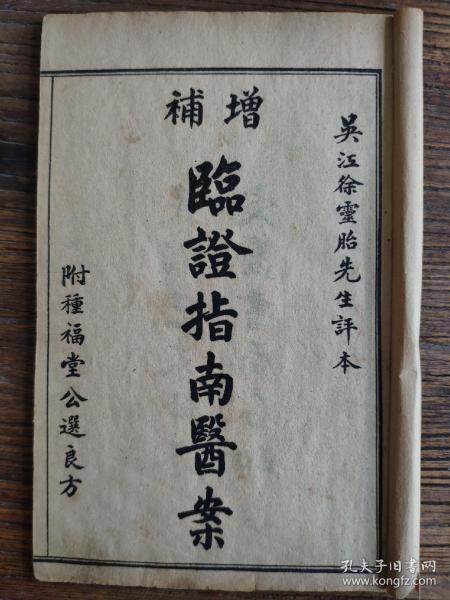 吳江徐靈胎先生評本
增補
臨證指南醫案
附種福堂公選良方
孔夫子旧书网
www.kongfz.com